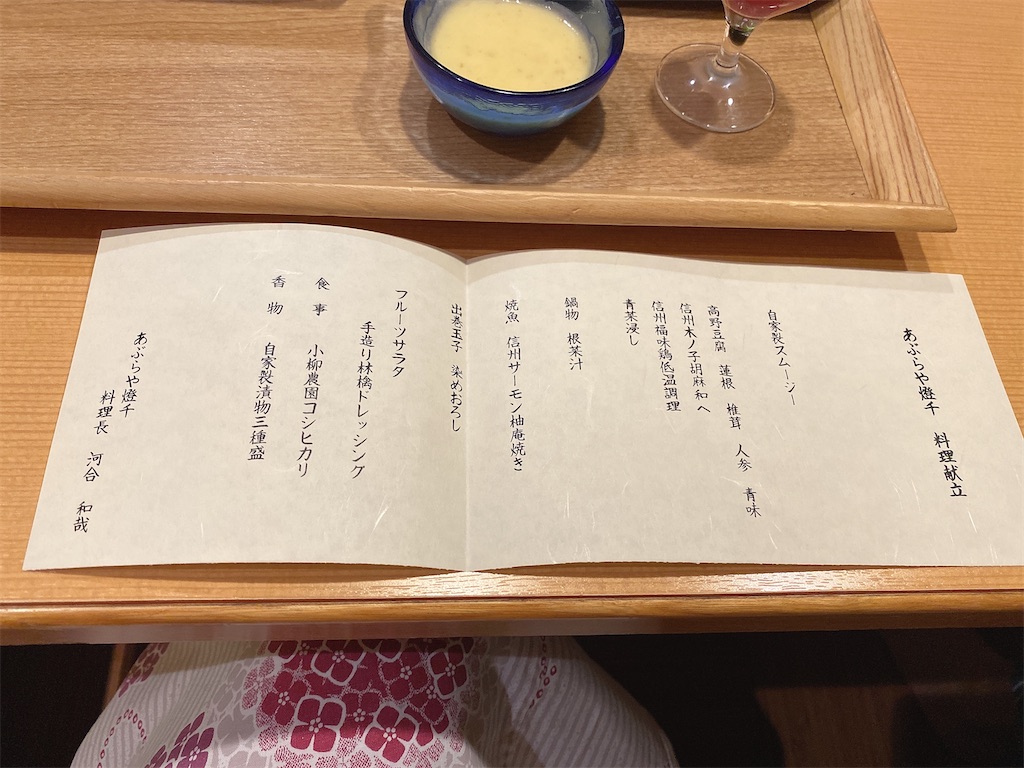 あぶらや燈千　料理献立
自家製スムージー
高野豆腐　蓮根　椎茸　人参　青味
信州木ノ子胡麻和へ
信州福味鶏低温調理
青菜浸し
鍋物　根菜汁
焼魚　信州サーモン柚庵焼き
出巻玉子　染めおろし
フルーツサラダ
手造り林檎ドレッシング
食事　小柳農園コシヒカリ
香物　自家製漬物三種盛
あぶらや燈千
料理長　河合　和哉